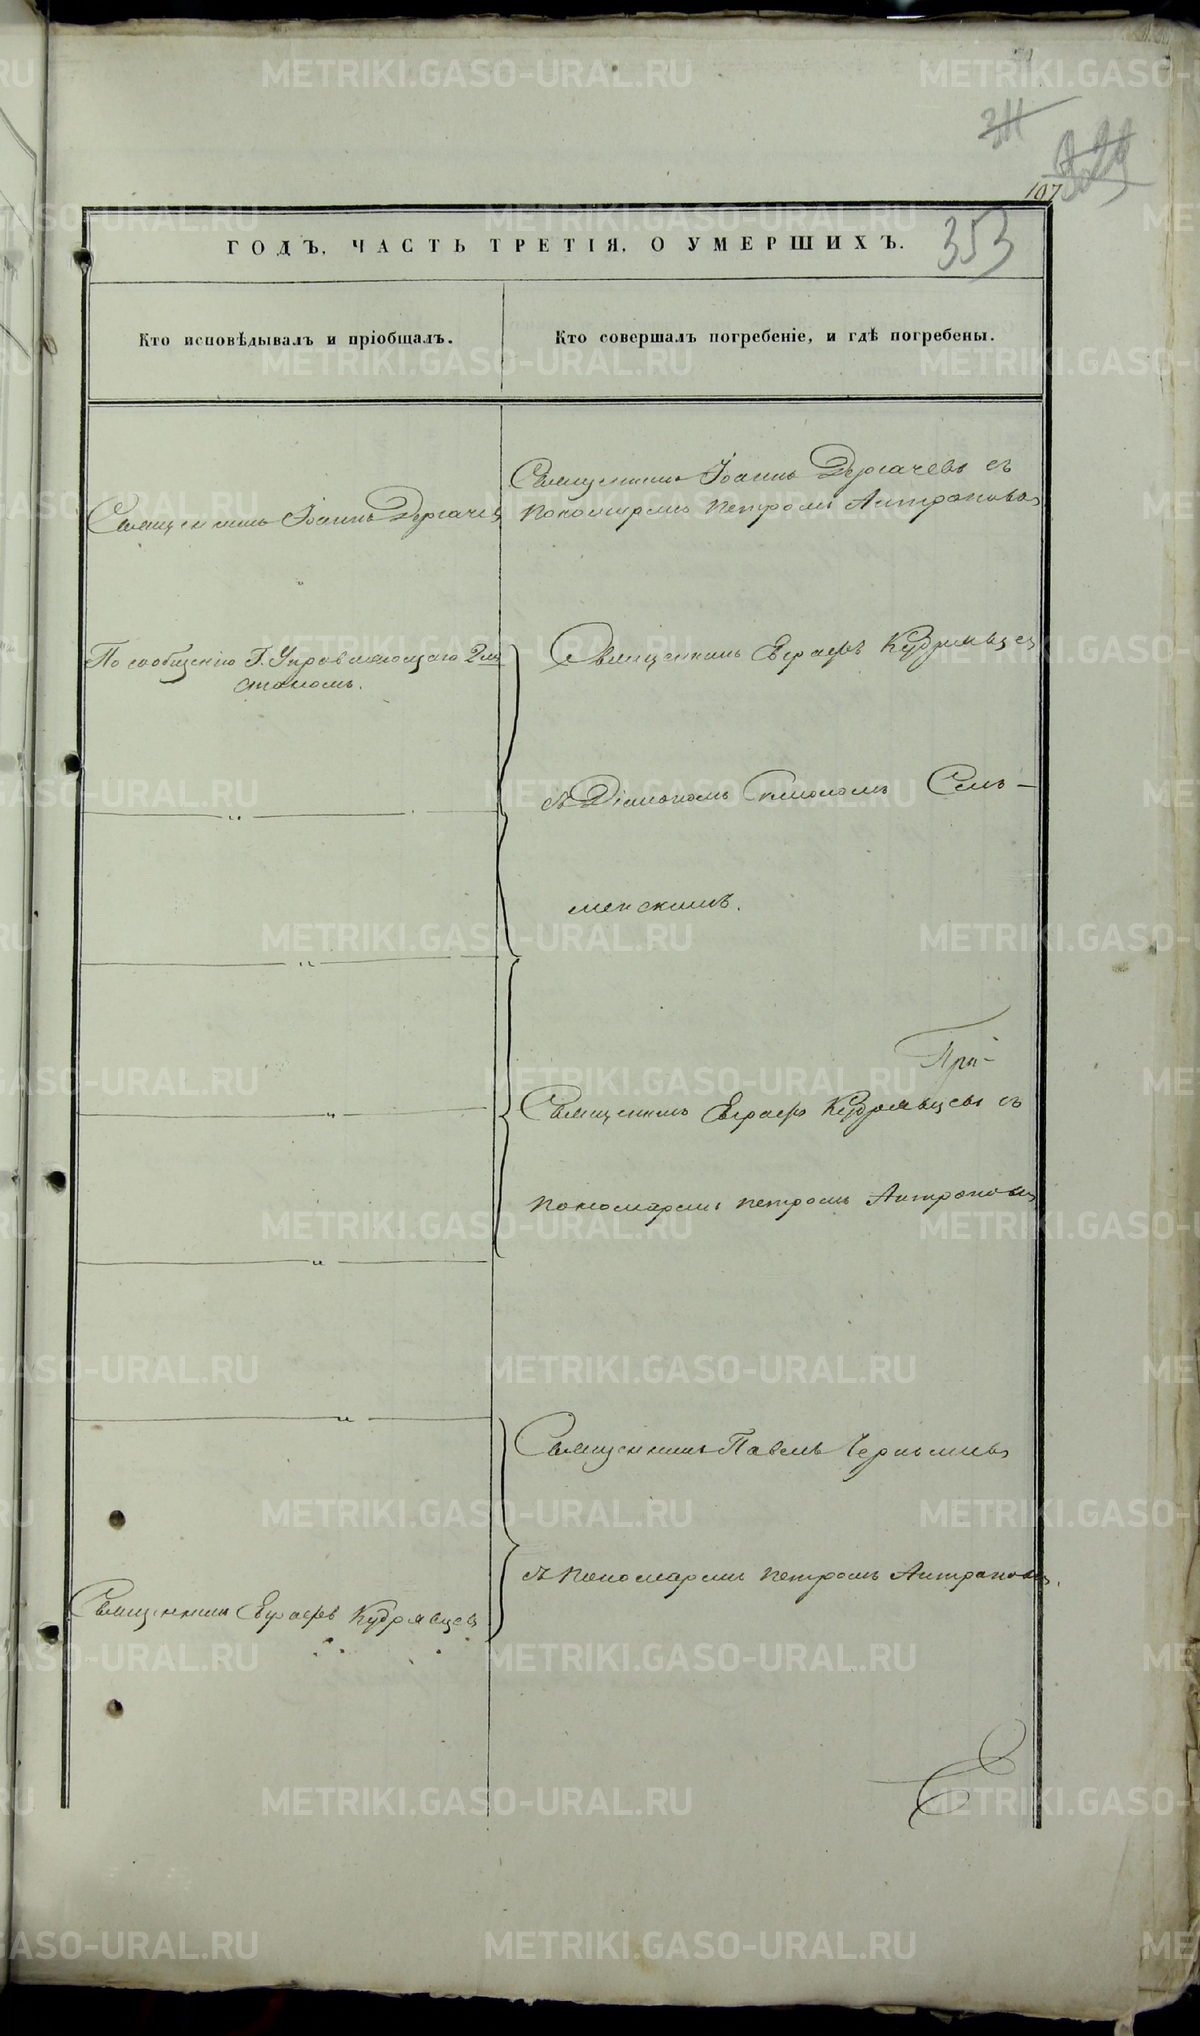 311
107
353
ГОДЪ, ЧАСТЬ ТРЕТІЯ, О УМЕРШИХЪ.
Кто исповѣдывалъ и пріобщалъ.
Кто совершалъ погребеніе, и гдѣ погребены.
Священникъ Іоаннъ Дергачевъ
Священникъ Іоаннъ Дергачевъ съ
пономаремъ Петромъ Антроповы
По сообщенію Г. Управляющаго 2мъ
станомъ.
Священникъ Евграфъ Кудрявцев
съ Діакономъ Семъ-
менскимъ.
При-
Священникъ Евграфъ Кудрявцевъ съ
пономаремъ Петромъ Антроповы
Священникъ Павелъ
съ пономаремъ Петромъ Антроповы.
Священникъ Евграфъ Кудрявцевъ
METRIKI.GASO-URAL.RU